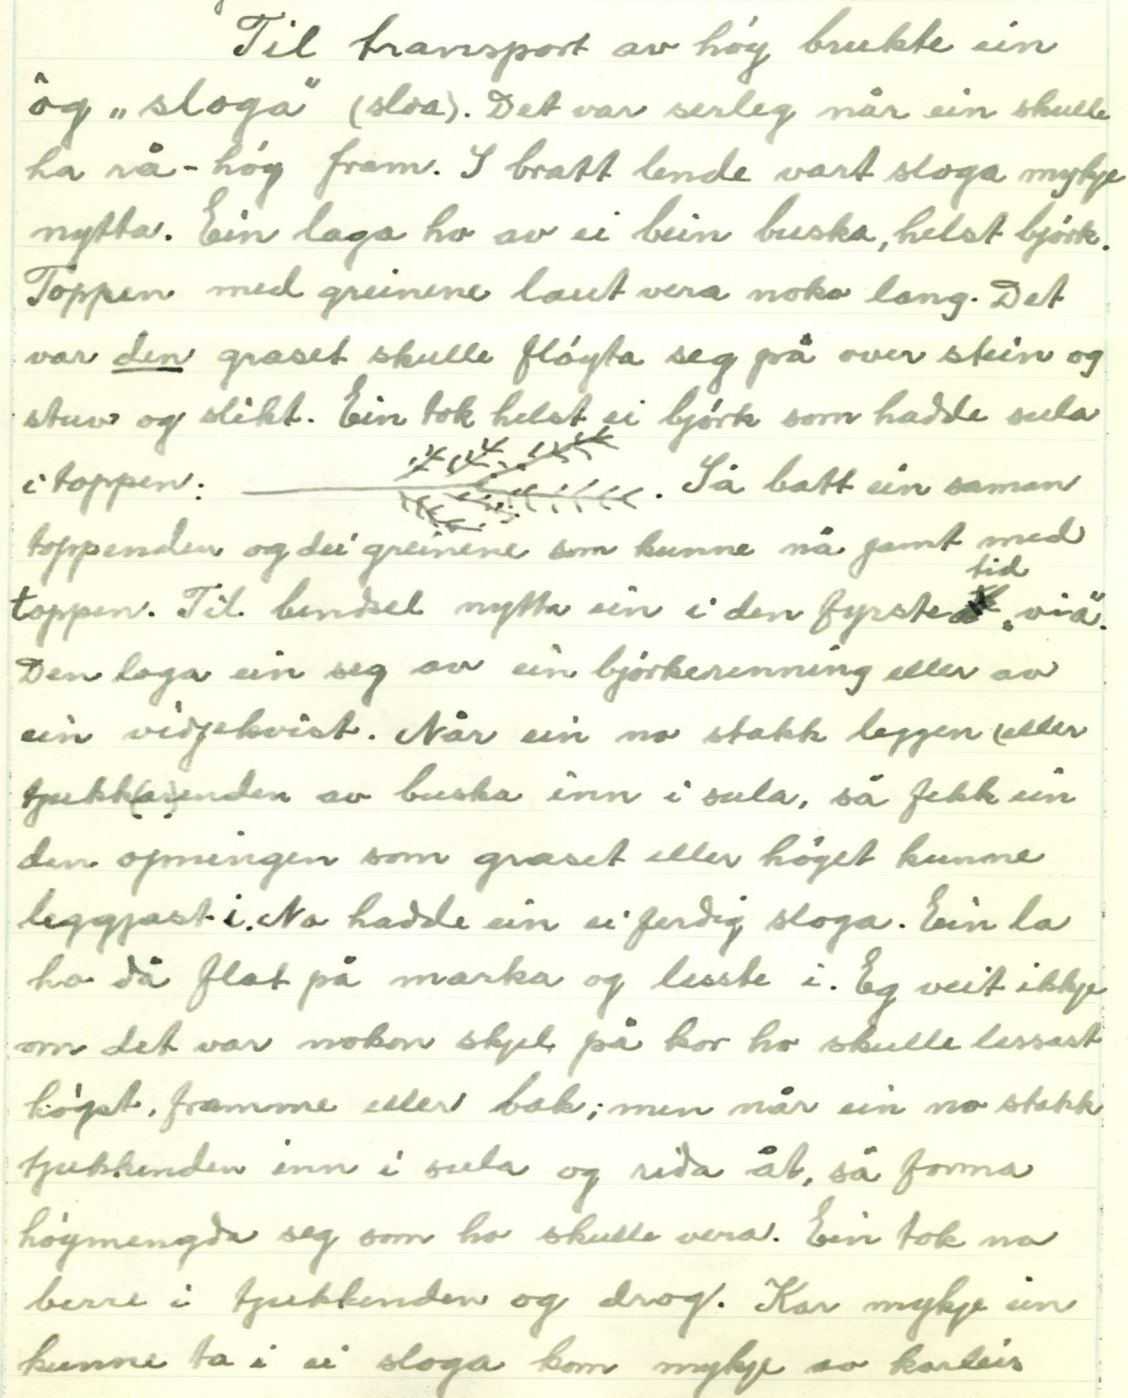 Til transport av høy brukte ein
òg „sloga" (sloa). Det var serleg når ein skulle
ha rå-høy fram. I bratt lende vart sloga mykje
nytta. Ein laga ho av ei bein buska, helst bjørk.
Toppen med greinene laut vera noko lang. Det
var den graset skulle fløyta seg på over stein og
stuv og slikt. Ein tok helst ei bjørk som hadde sula
i toppen: . Så batt ein saman
toppenden og dei greinene som kunne nå jamt med
toppen. Til bendsel nytta ein i den fyrste tid „viå".
Den laga ein seg av ein bjørkerenning eller av
ein vidjekvist. Når ein no stakk leggen (eller
tjukk(as)enden av buska inn i sula, så fekk ein
den opningen som graset eller høyet kunne
leggjast i. No hadde ein ei ferdig sloga. Ein la
ho då flat på marka og lesste i. Eg veit ikkje
om det var nokon skjel på kor ho skulle lessast
høgst, framme eller bak; men når ein no stakk
tjukkenden inn i sula og rida åt, så forma
høymengda seg som ho skulle vera. Ein tok no
berre i tjukkenden og drog. Kor mykje ein
kunne ta i ei sloga kom mykje av korleis